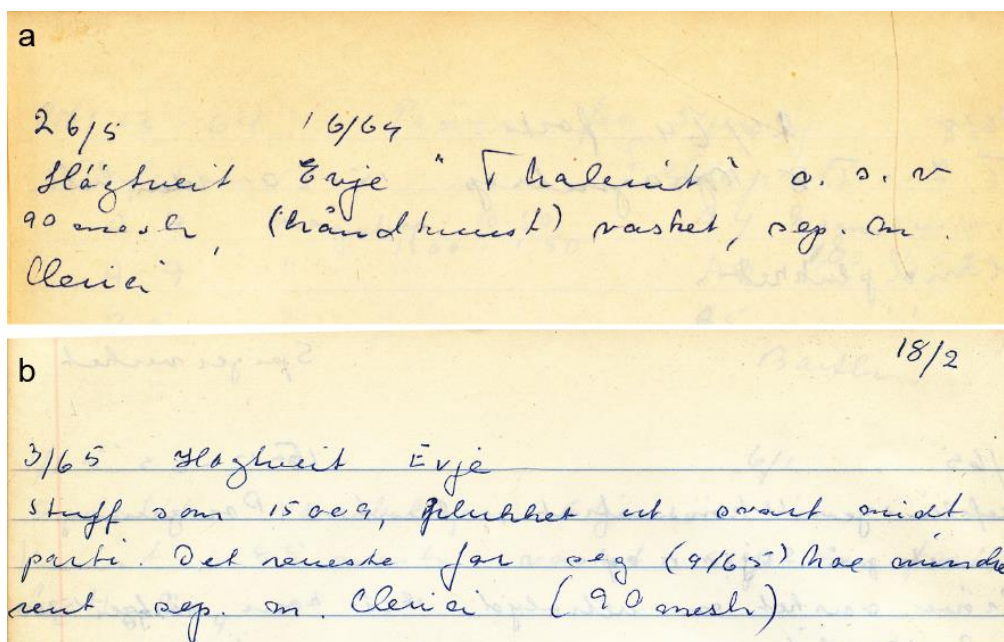 a
26/5 16/64
Högtveit Evje "Thalenit" o.s.v
90 mesh, (håndknust) vasket, sep. m.
Clerici
b
18/2
3/65 Høgtveit Evje
Stuff som 15009, plukket ut svart midt
parti. Det reneste for seg (9/65) noe mindre
rent sep. m. Clerici (90 mesh)